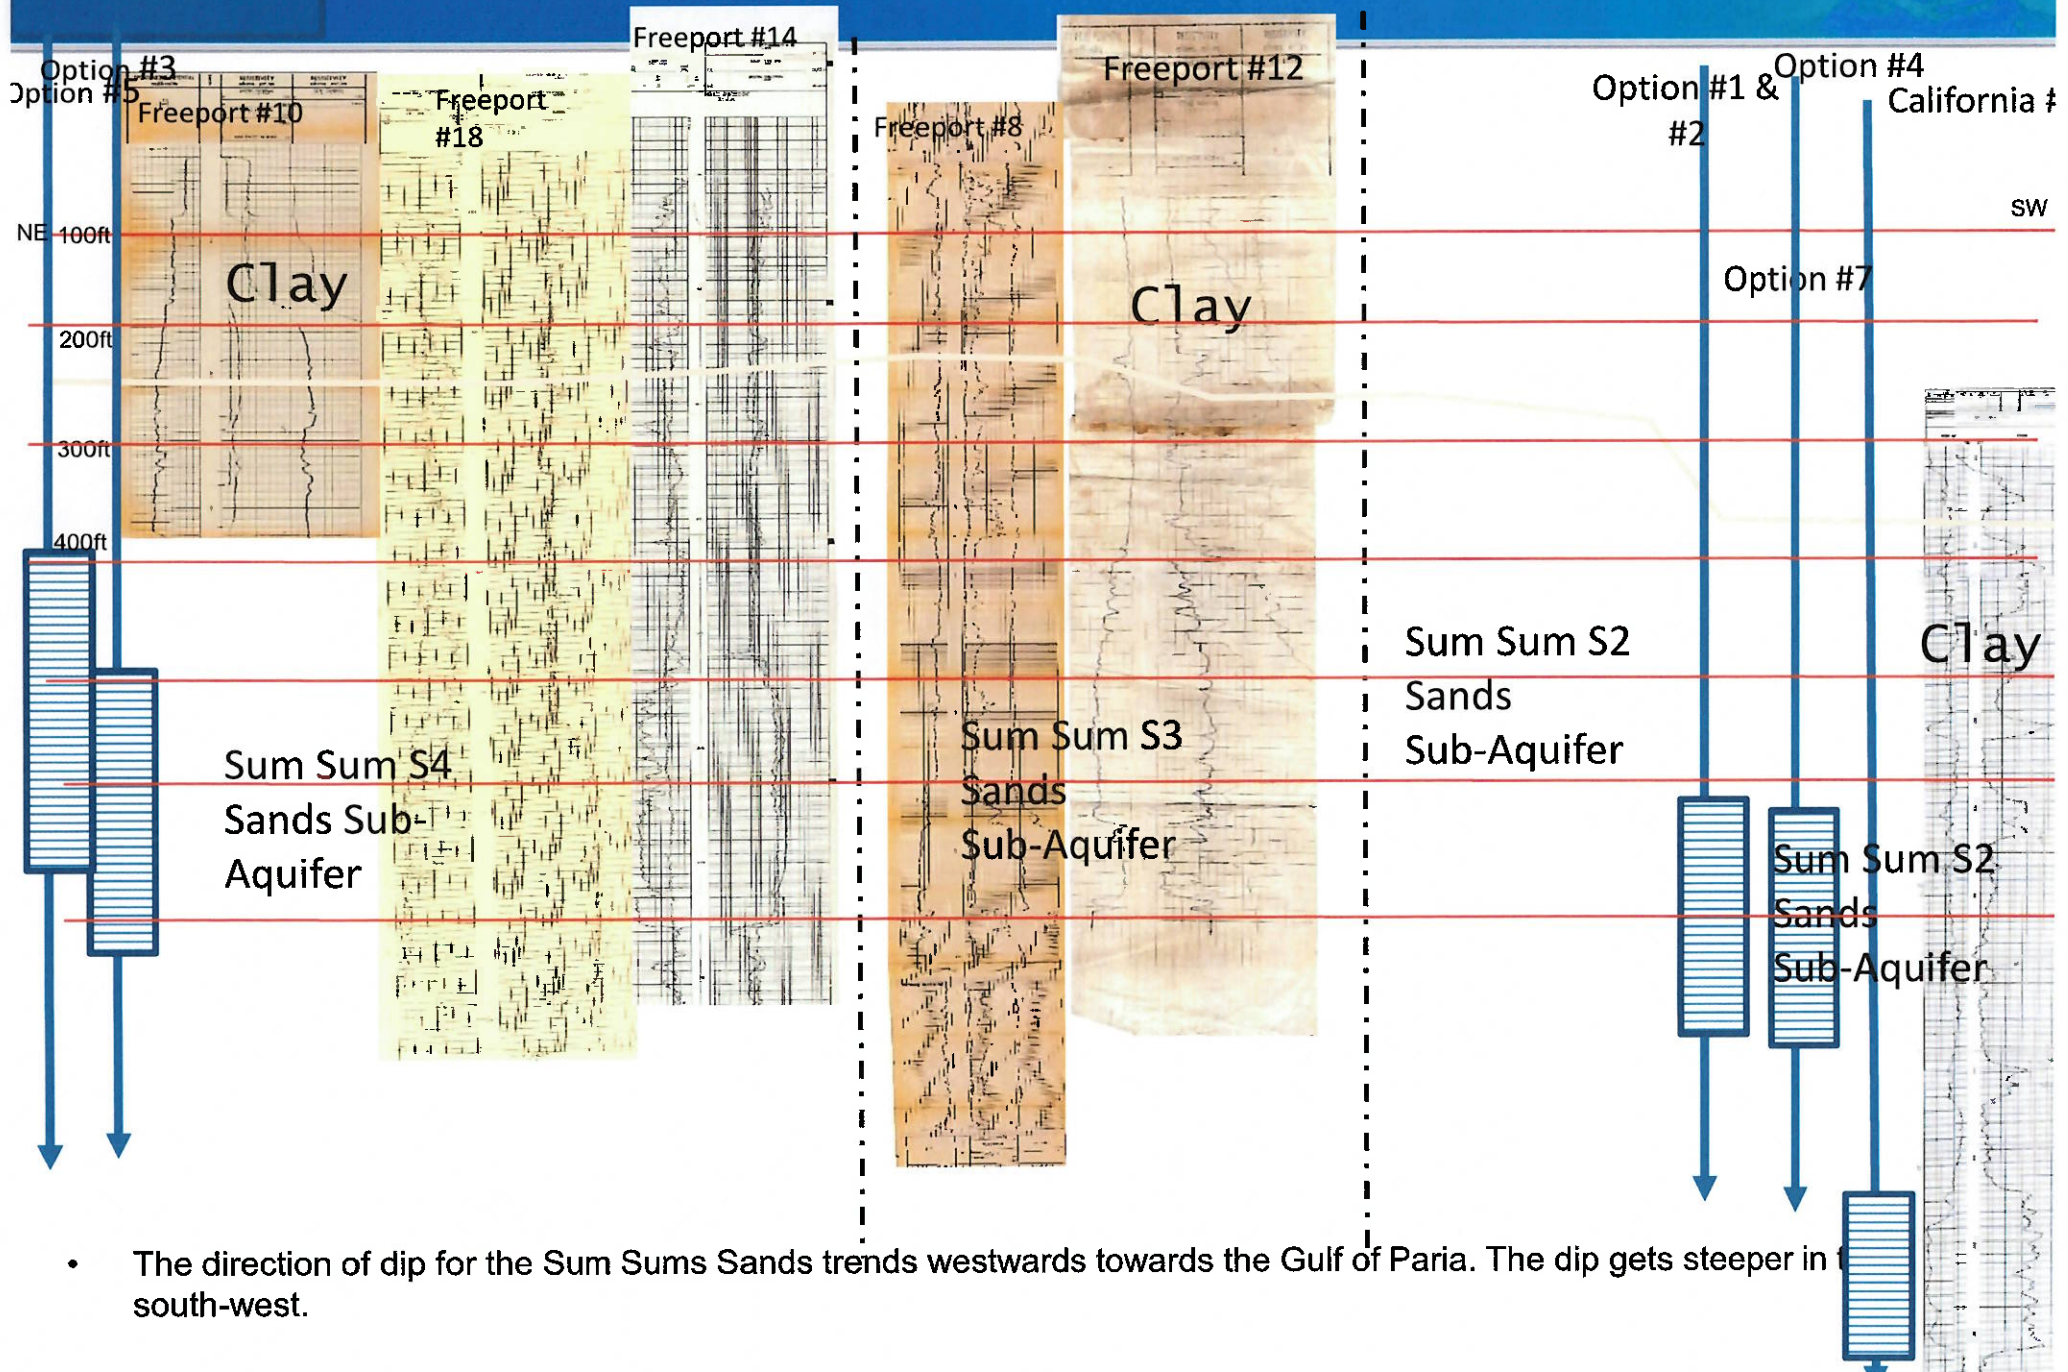 Freeport #14
Option #3
Option #5
Freeport #10
Freeport
#18
Freeport #8
Freeport #12
Option #1 &
#2
Option #4
California #
NE
100ft
SW
Clay
Clay
Option #7
200ft
300ft
400ft
Sum Sum S2
Sands
Sub-Aquifer
Clay
Sum Sum S4
Sands Sub-
Aquifer
Sum Sum S3
Sands
Sub-Aquifer
Sum Sum S2
Sands
Sub-Aquifer
• The direction of dip for the Sum Sums Sands trends westwards towards the Gulf of Paria. The dip gets steeper in
south-west.